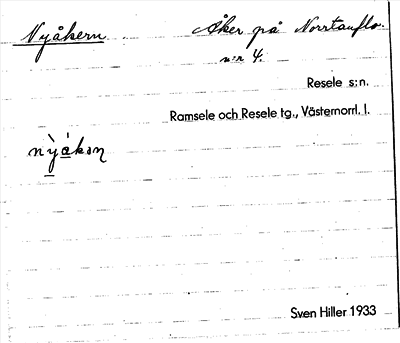 Nyåkern
Åker på Norrtanflo
n:r 4.
Resele s:n.
Ramsele och Resele tg., Västernorrl. l.
nỳákən
Sven Hiller 1933